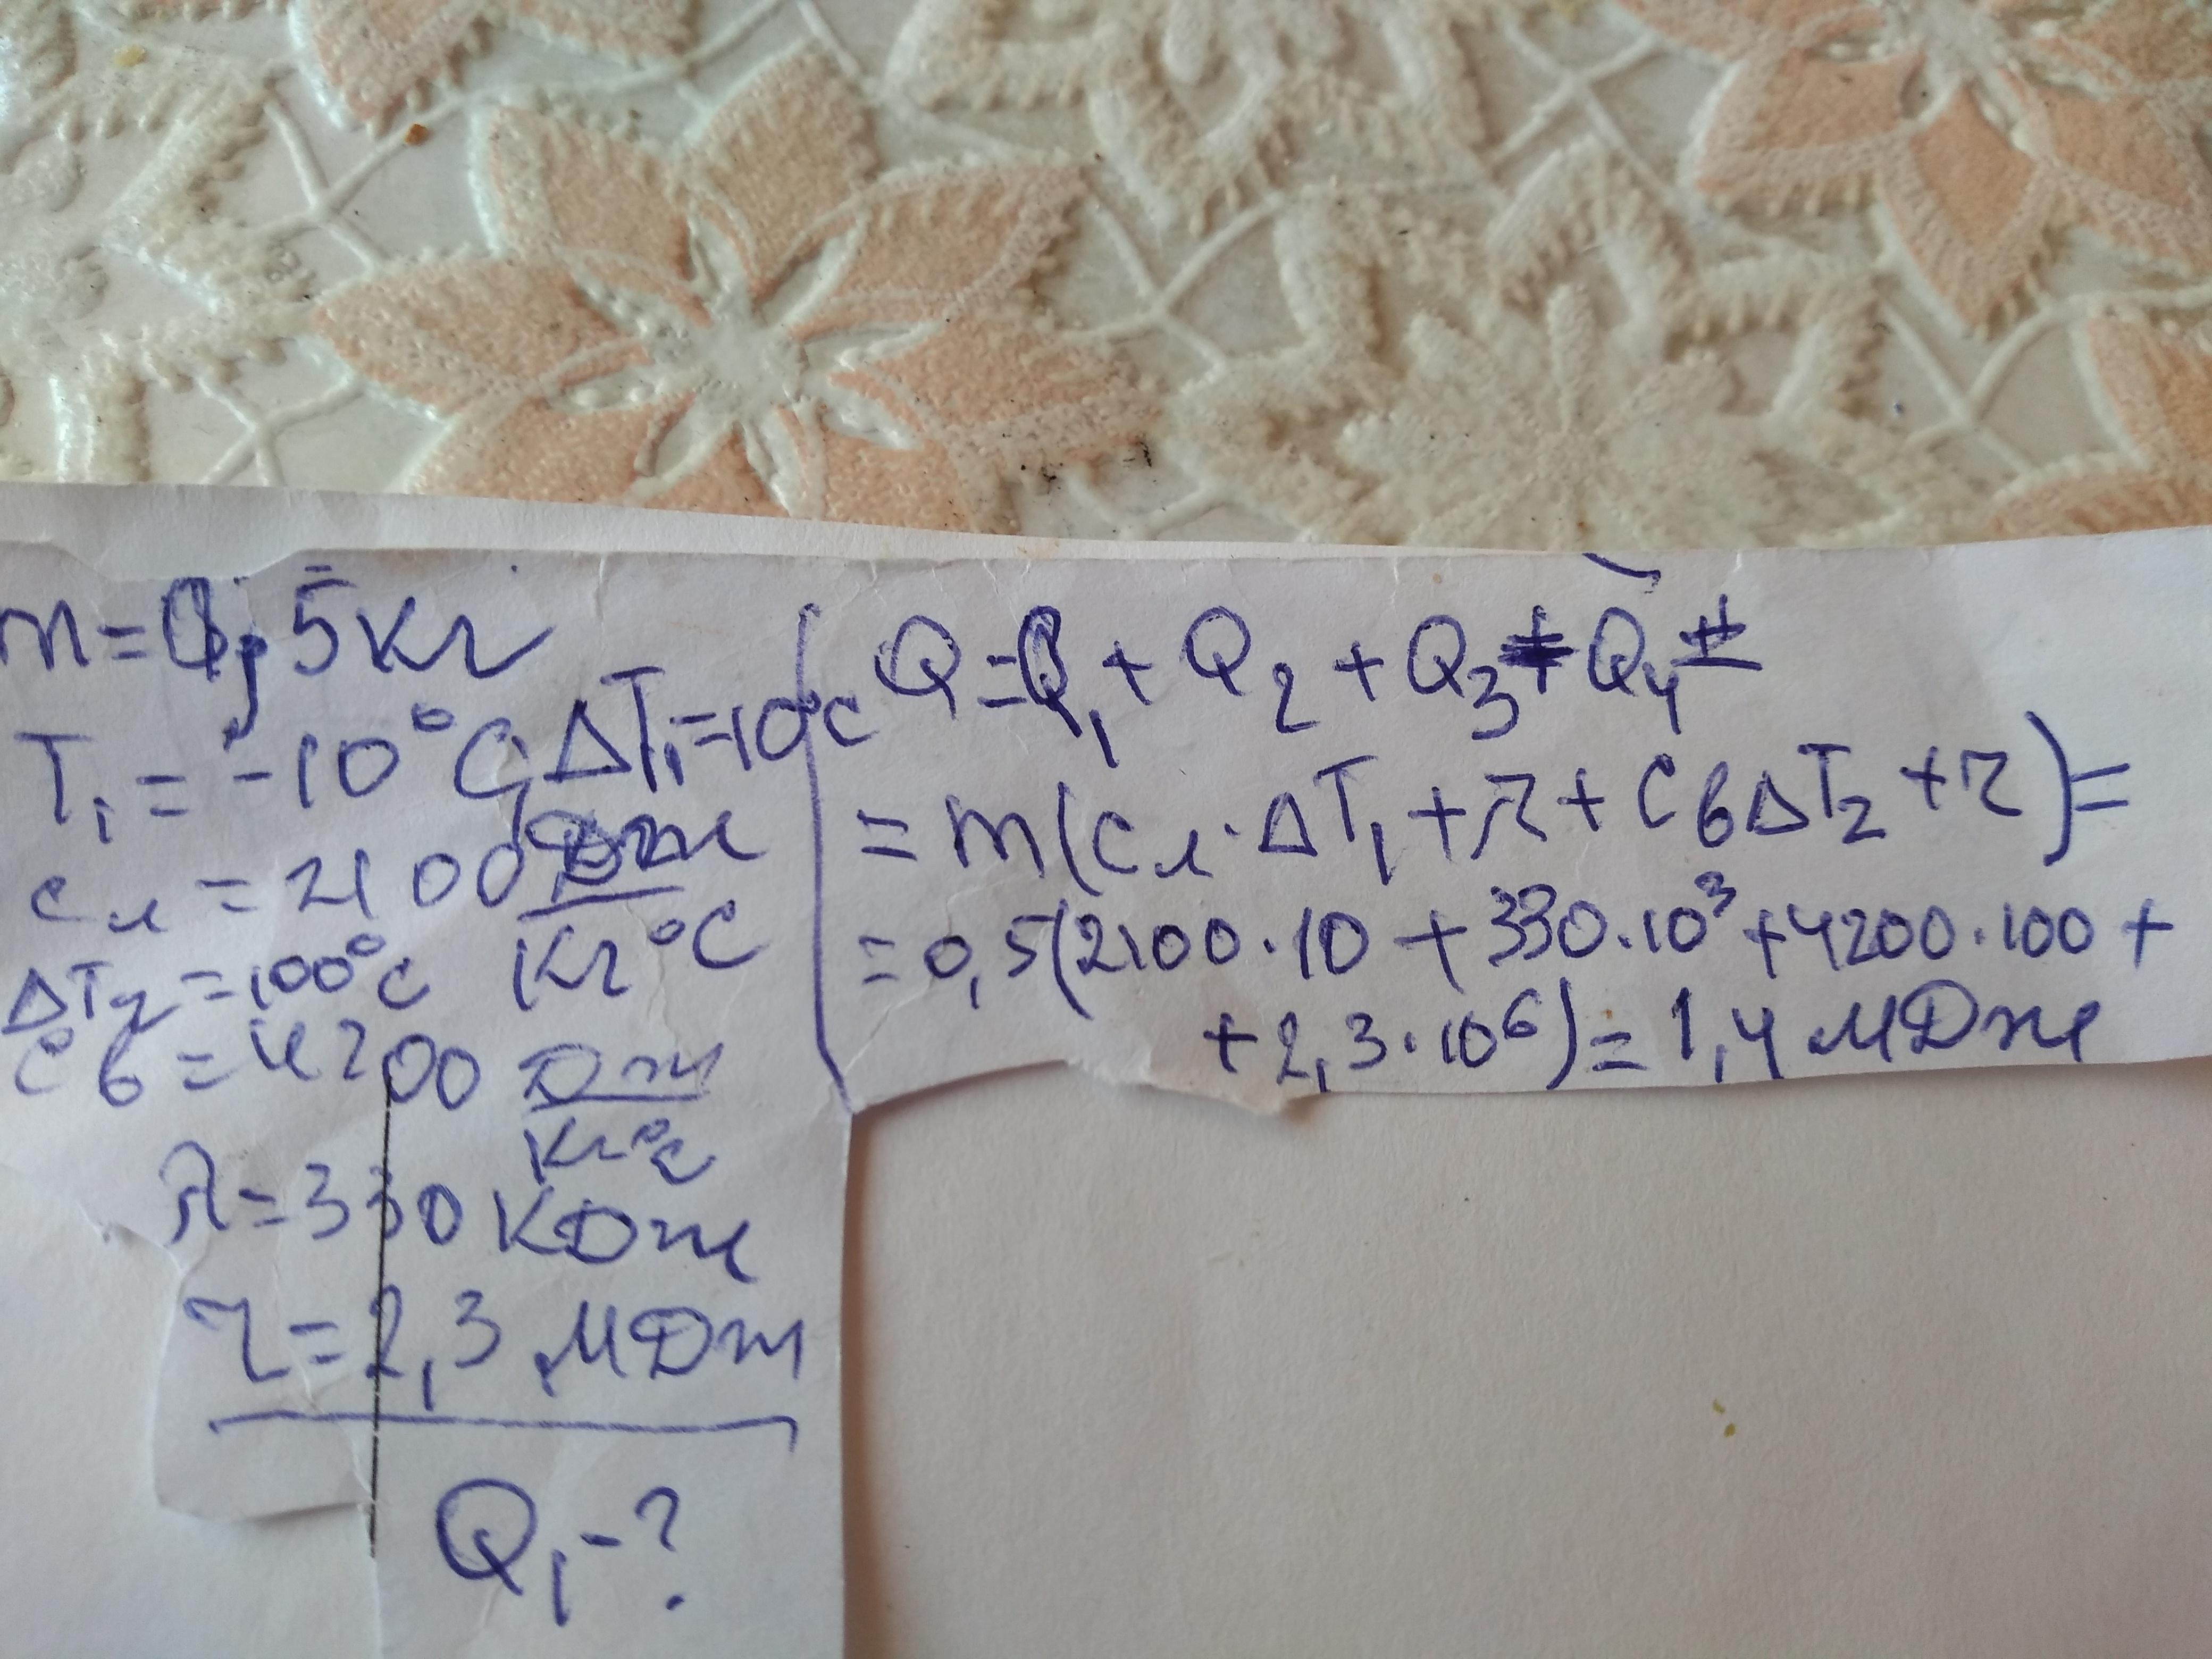 m = 0,5 кг
T₁ = -10°C, ΔT₁ = 10°C
cл = 2100 Дж/кг°C
ΔT₂ = 100°C
cв = 4200 Дж/кг°C
λ = 330 кДж
r = 2,3 МДж
Q₁ - ?
Q = Q₁ + Q₂ + Q₃ + Q₄ =
= m(cл · ΔT₁ + λ + cвΔT₂ + r) =
= 0,5(2100 · 10 + 330 · 10³ + 4200 · 100 +
+ 2,3 · 10⁶) = 1,4 МДж